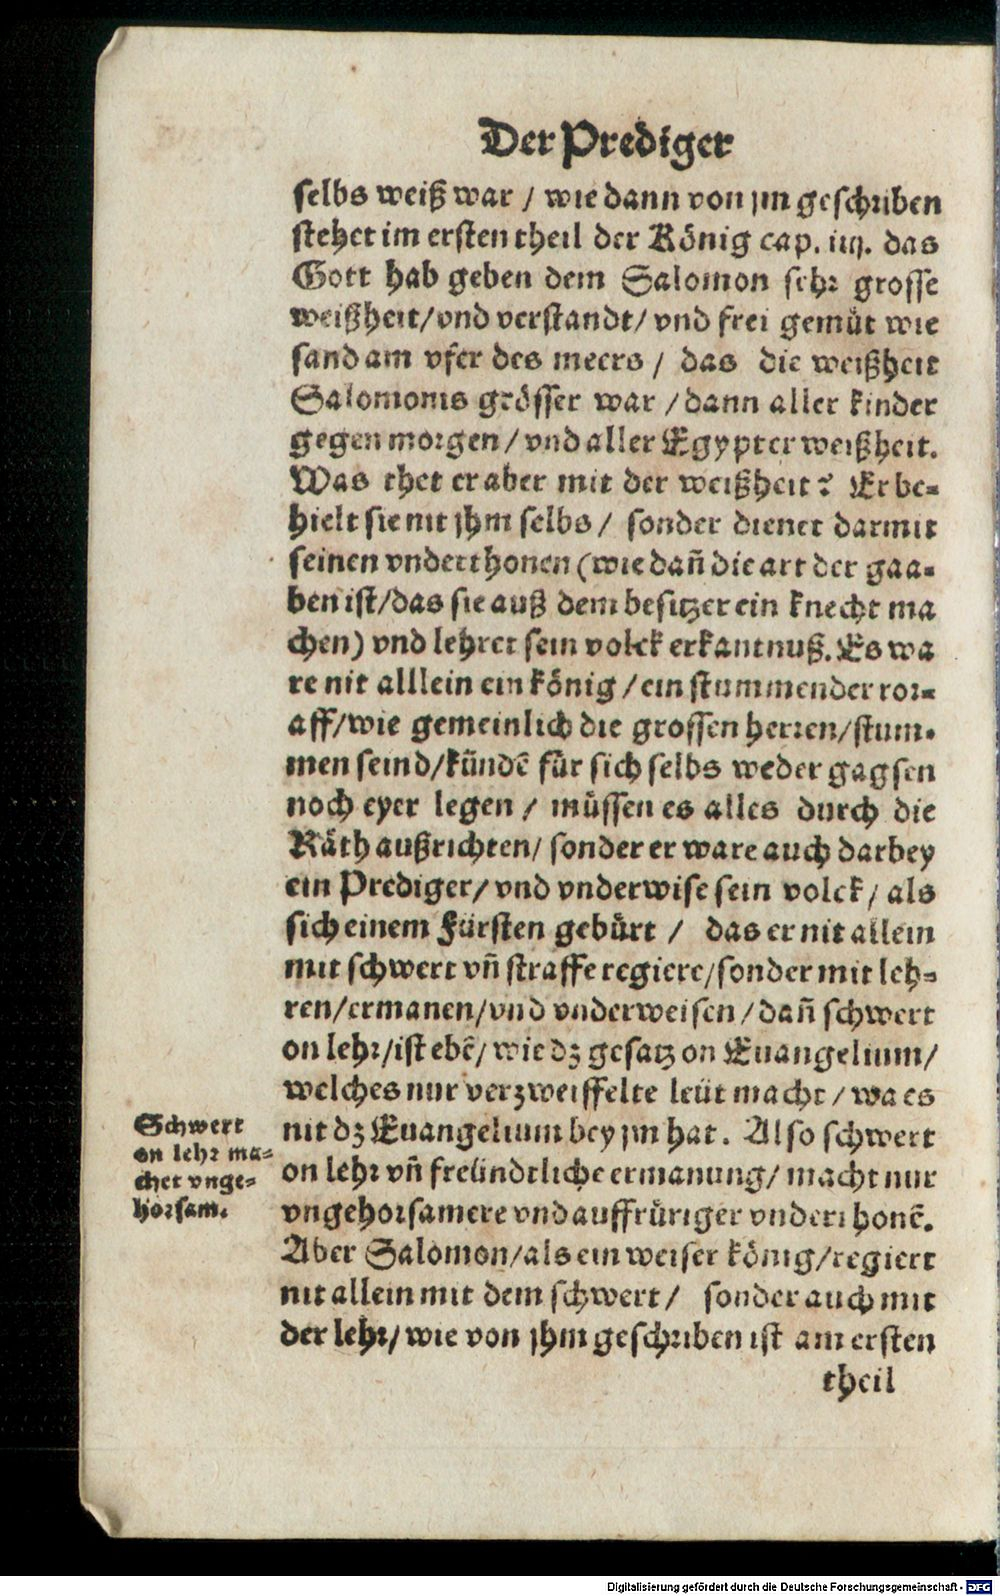 Der Prediger
selbs weiß war / wie dann von jm geschriben
stehet im ersten theil der König cap. iiij. das
Gott hab geben dem Salomon sehr grosse
weißheit/vnd verstandt/ vnd frei gemüt wie
sand am vfer des meers / das die weißheit
Salomonis grösser war / dann aller kinder
gegen morgen / vnd aller Egypter weißheit.
Was thet er aber mit der weißheit? Er be-
hielt sie nit jhm selbs / sonder dienet darmit
seinen vnderthonen (wie dañ die art der gaa-
ben ist/das sie auß dem besitzer ein knecht ma
chen) vnd lehret sein volck erkantnuß. Es wa
re nit alllein ein könig / ein stummender ror-
aff/wie gemeinlich die grossen herren/stum-
men seind/kündẽ für sich selbs weder gagsen
noch eyer legen / müssen es alles durch die
Räth außrichten/ sonder er ware auch darbey
ein Prediger/ vnd vnderwise sein volck / als
sich einem Fürsten gebürt / das er nit allein
mit schwert vñ straffe regiere/sonder mit leh-
ren/ermanen/vnd vnderweisen / dañ schwert
on lehr/ist ebẽ/ wie dz gesatz on Euangelium/
welches nur verzweiffelte leüt macht / wa es
nit dz Euangelium bey jm hat. Also schwert
on lehr vñ freündtliche ermanung/ macht nur
vngehorsamere vnd auffrüriger vnderthonẽ.
Aber Salomon/als ein weiser könig/regiert
nit allein mit dem schwert / sonder auch mit
der lehr/ wie von jhm geschriben ist am ersten
theil
Schwert
on lehr ma-
chet vnge-
horsam.
Digitalisierung gefördert durch die Deutsche Forschungsgemeinschaft - DFG